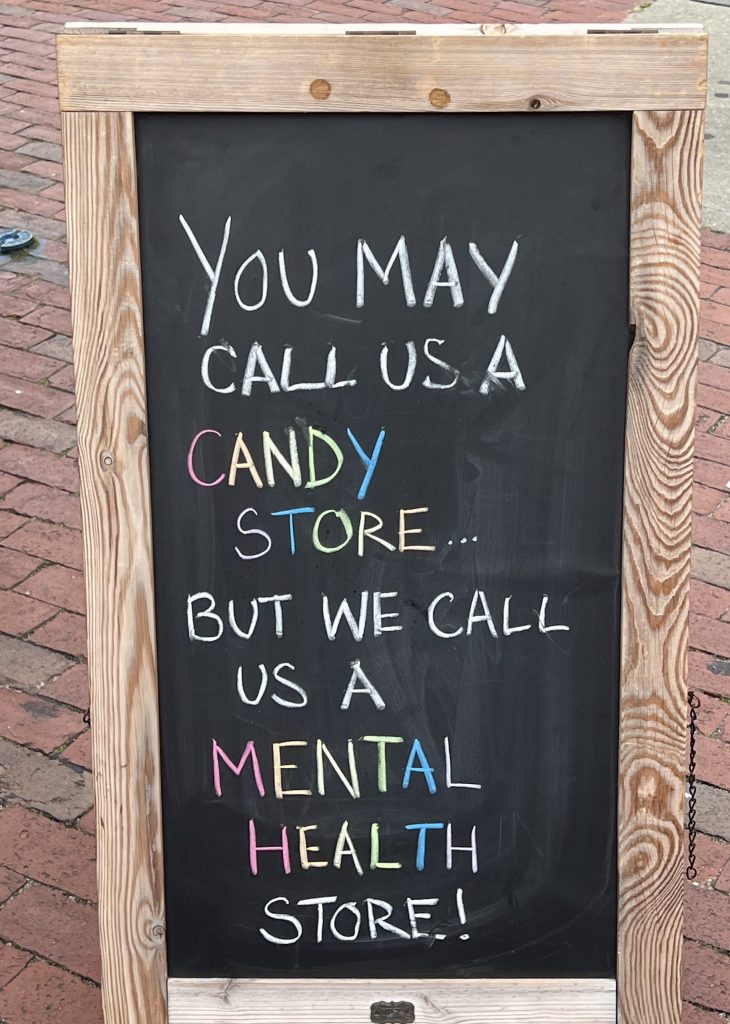 YOU MAY
CALL US A
CANDY
STORE...
BUT WE CALL
US A
MENTAL
HEALTH
STORE!